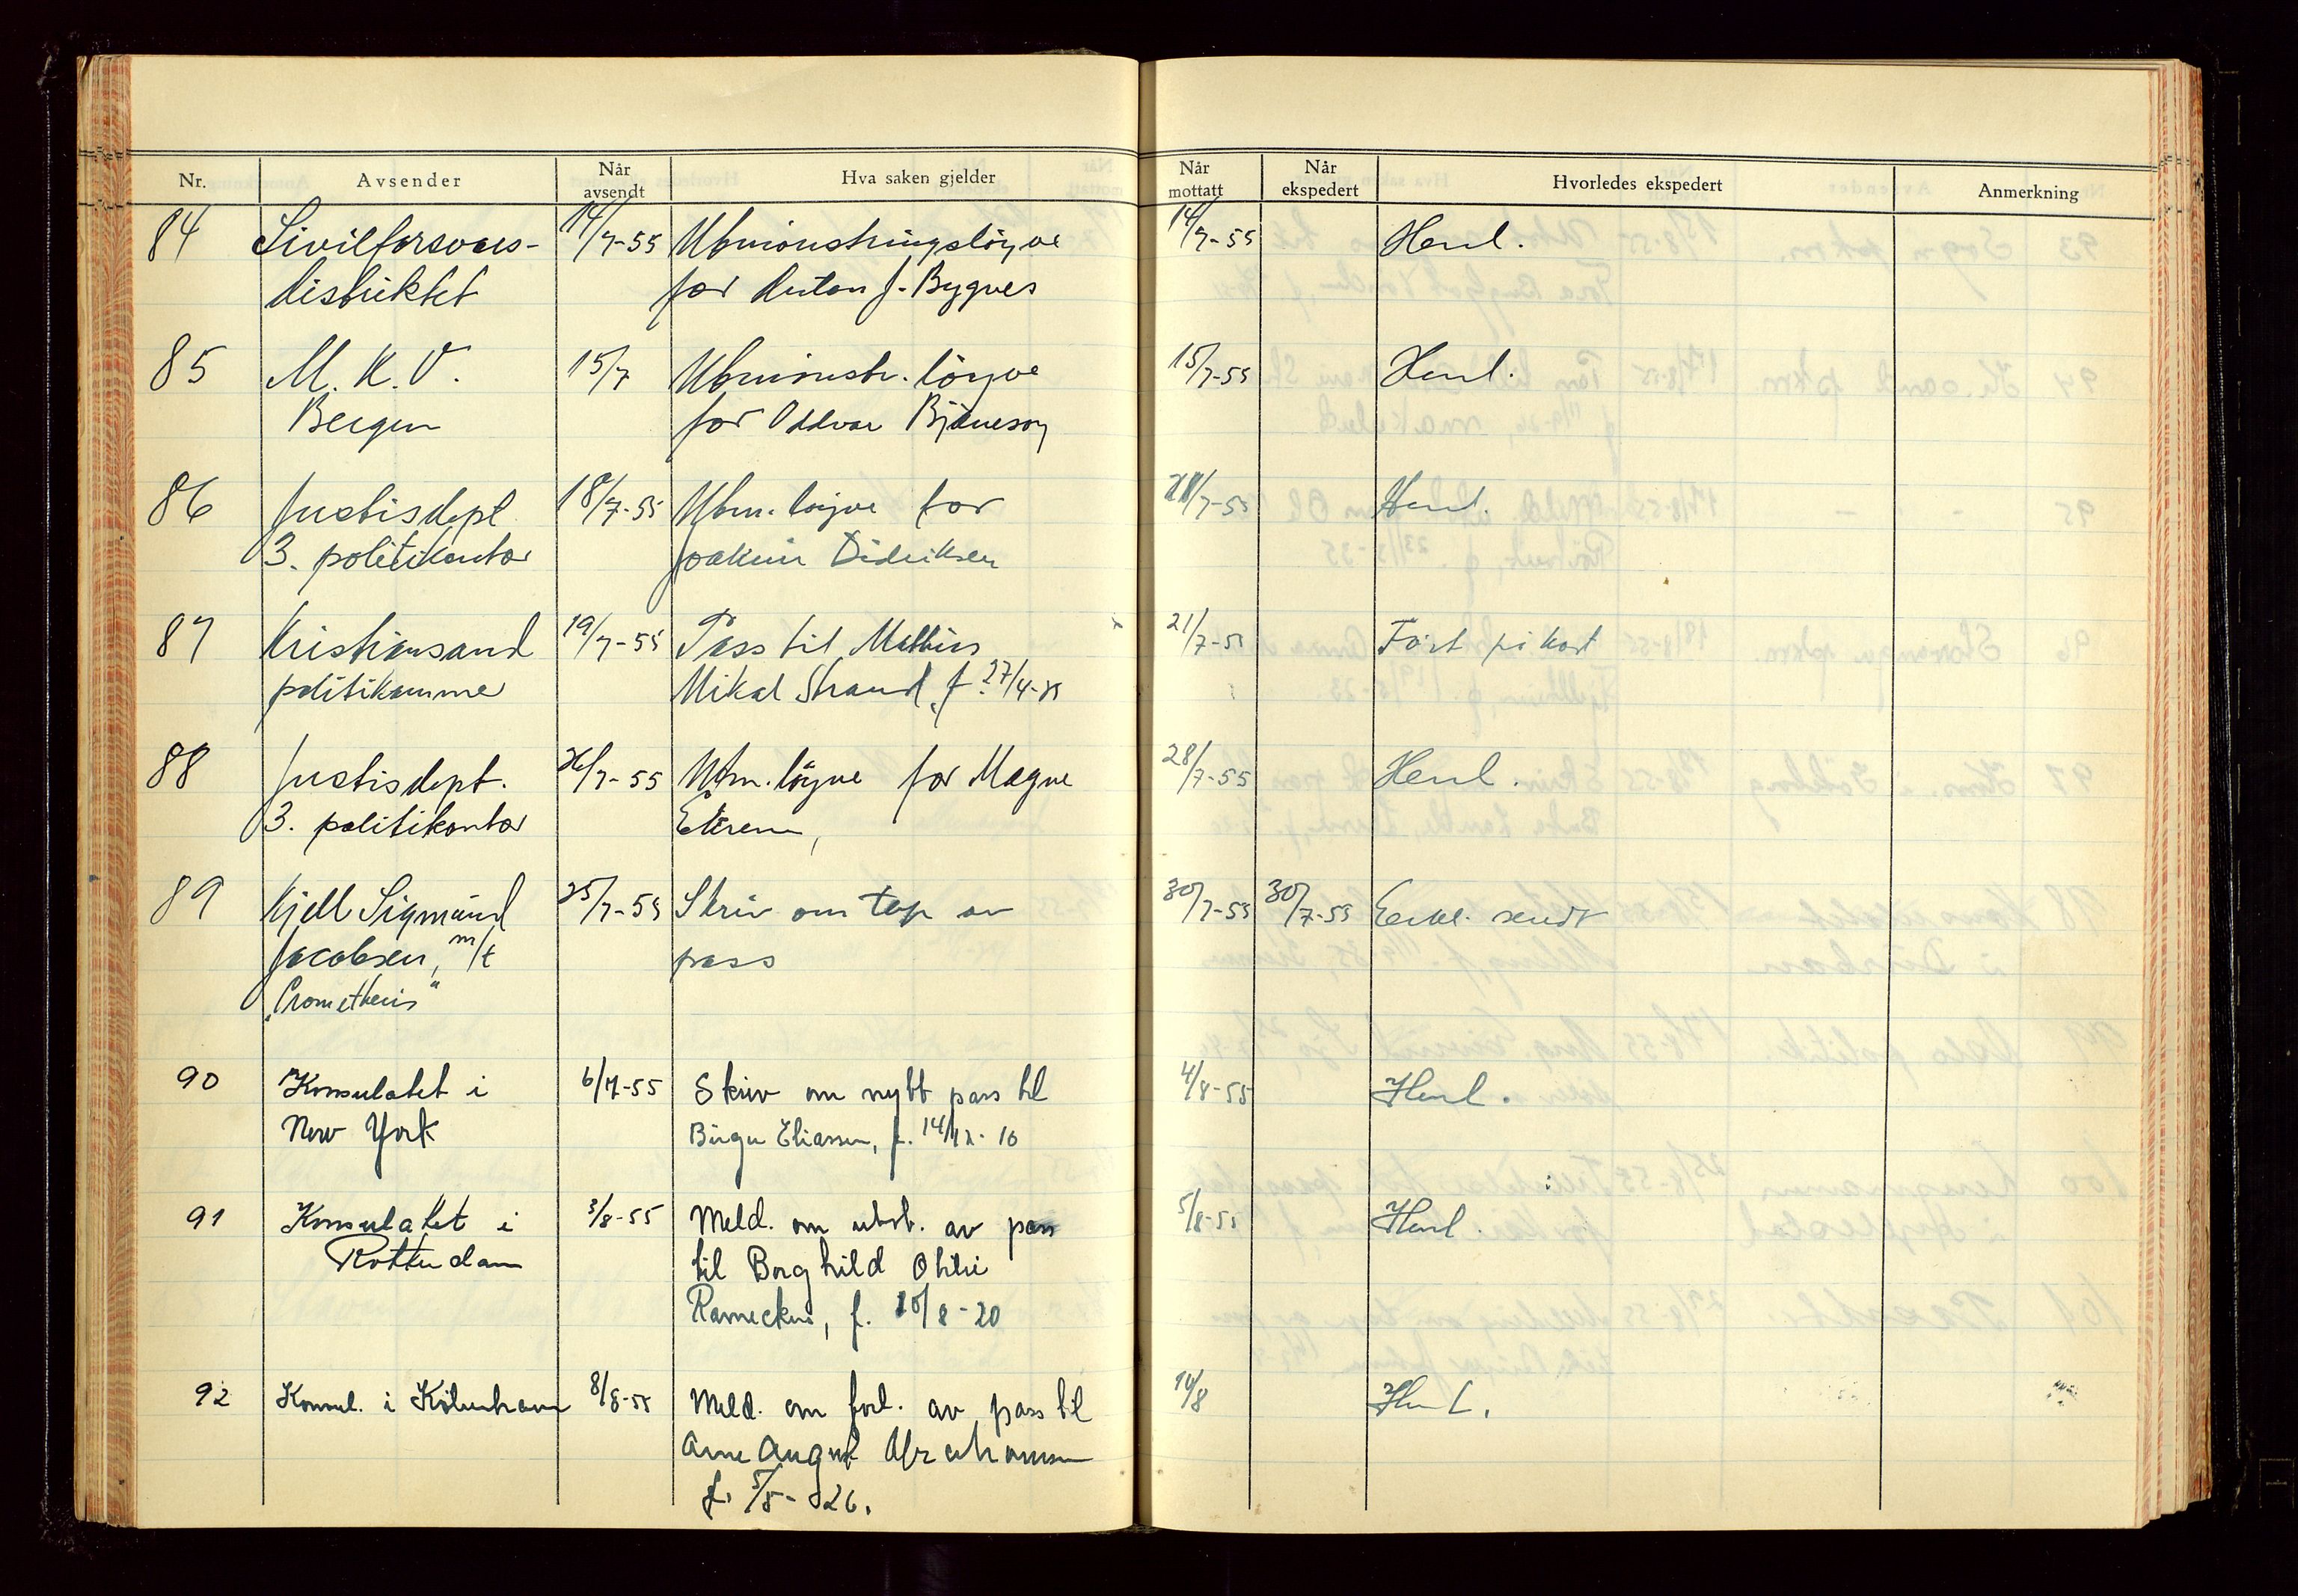 Nr. Avsender Når avsendt Hva saken gjelder Når mottatt Når ekspedert Hvorledes ekspedert Anmerkning
84 Sivilforsvars- 14/7-55 Utmönstringslöyve 14/7-55 Henl.
distriktet for Anton J. Bygnes
85 M. K. V. 15/7 Utmönstr. löyve 15/7-55 Henl.
Bergen for Oddvar
86 Justisdept 18/7-55 Utm. löyve for /7-55 Henl.
3. politikontor Joakim Didriksen
87 Kristiansand 19/7-55 Pass til Mathias 21/7-55 Fört på kort
politikammer Mikal Strand, f. 27/4-
88 Justisdept. 26/7-55 Utm. löyve for Magne 28/7-55 Henl.
3. politikontor
89 Kjell Sigmund 25/7-55 Skriv om tap av 30/7-55 30/7-55 Erkl. sendt
Jacobsen, m/t pass
"Prometheus"
90 Konsulatet i 6/7-55 Skriv om nytt pass til 4/8-55 Henl.
New York Birger Eliassen, f. 14/12-10
91 Konsulatet i 3/8-55 Meld. om utst. av pass 5/8-55 Henl.
Rotterdam til Borghild
f. 10/8-20
92 Konsul. i København 8/8-55 Meld. om forl. av pass til 10/8 Henl.
Arne August Abrahamsen
f. 5/8-26.